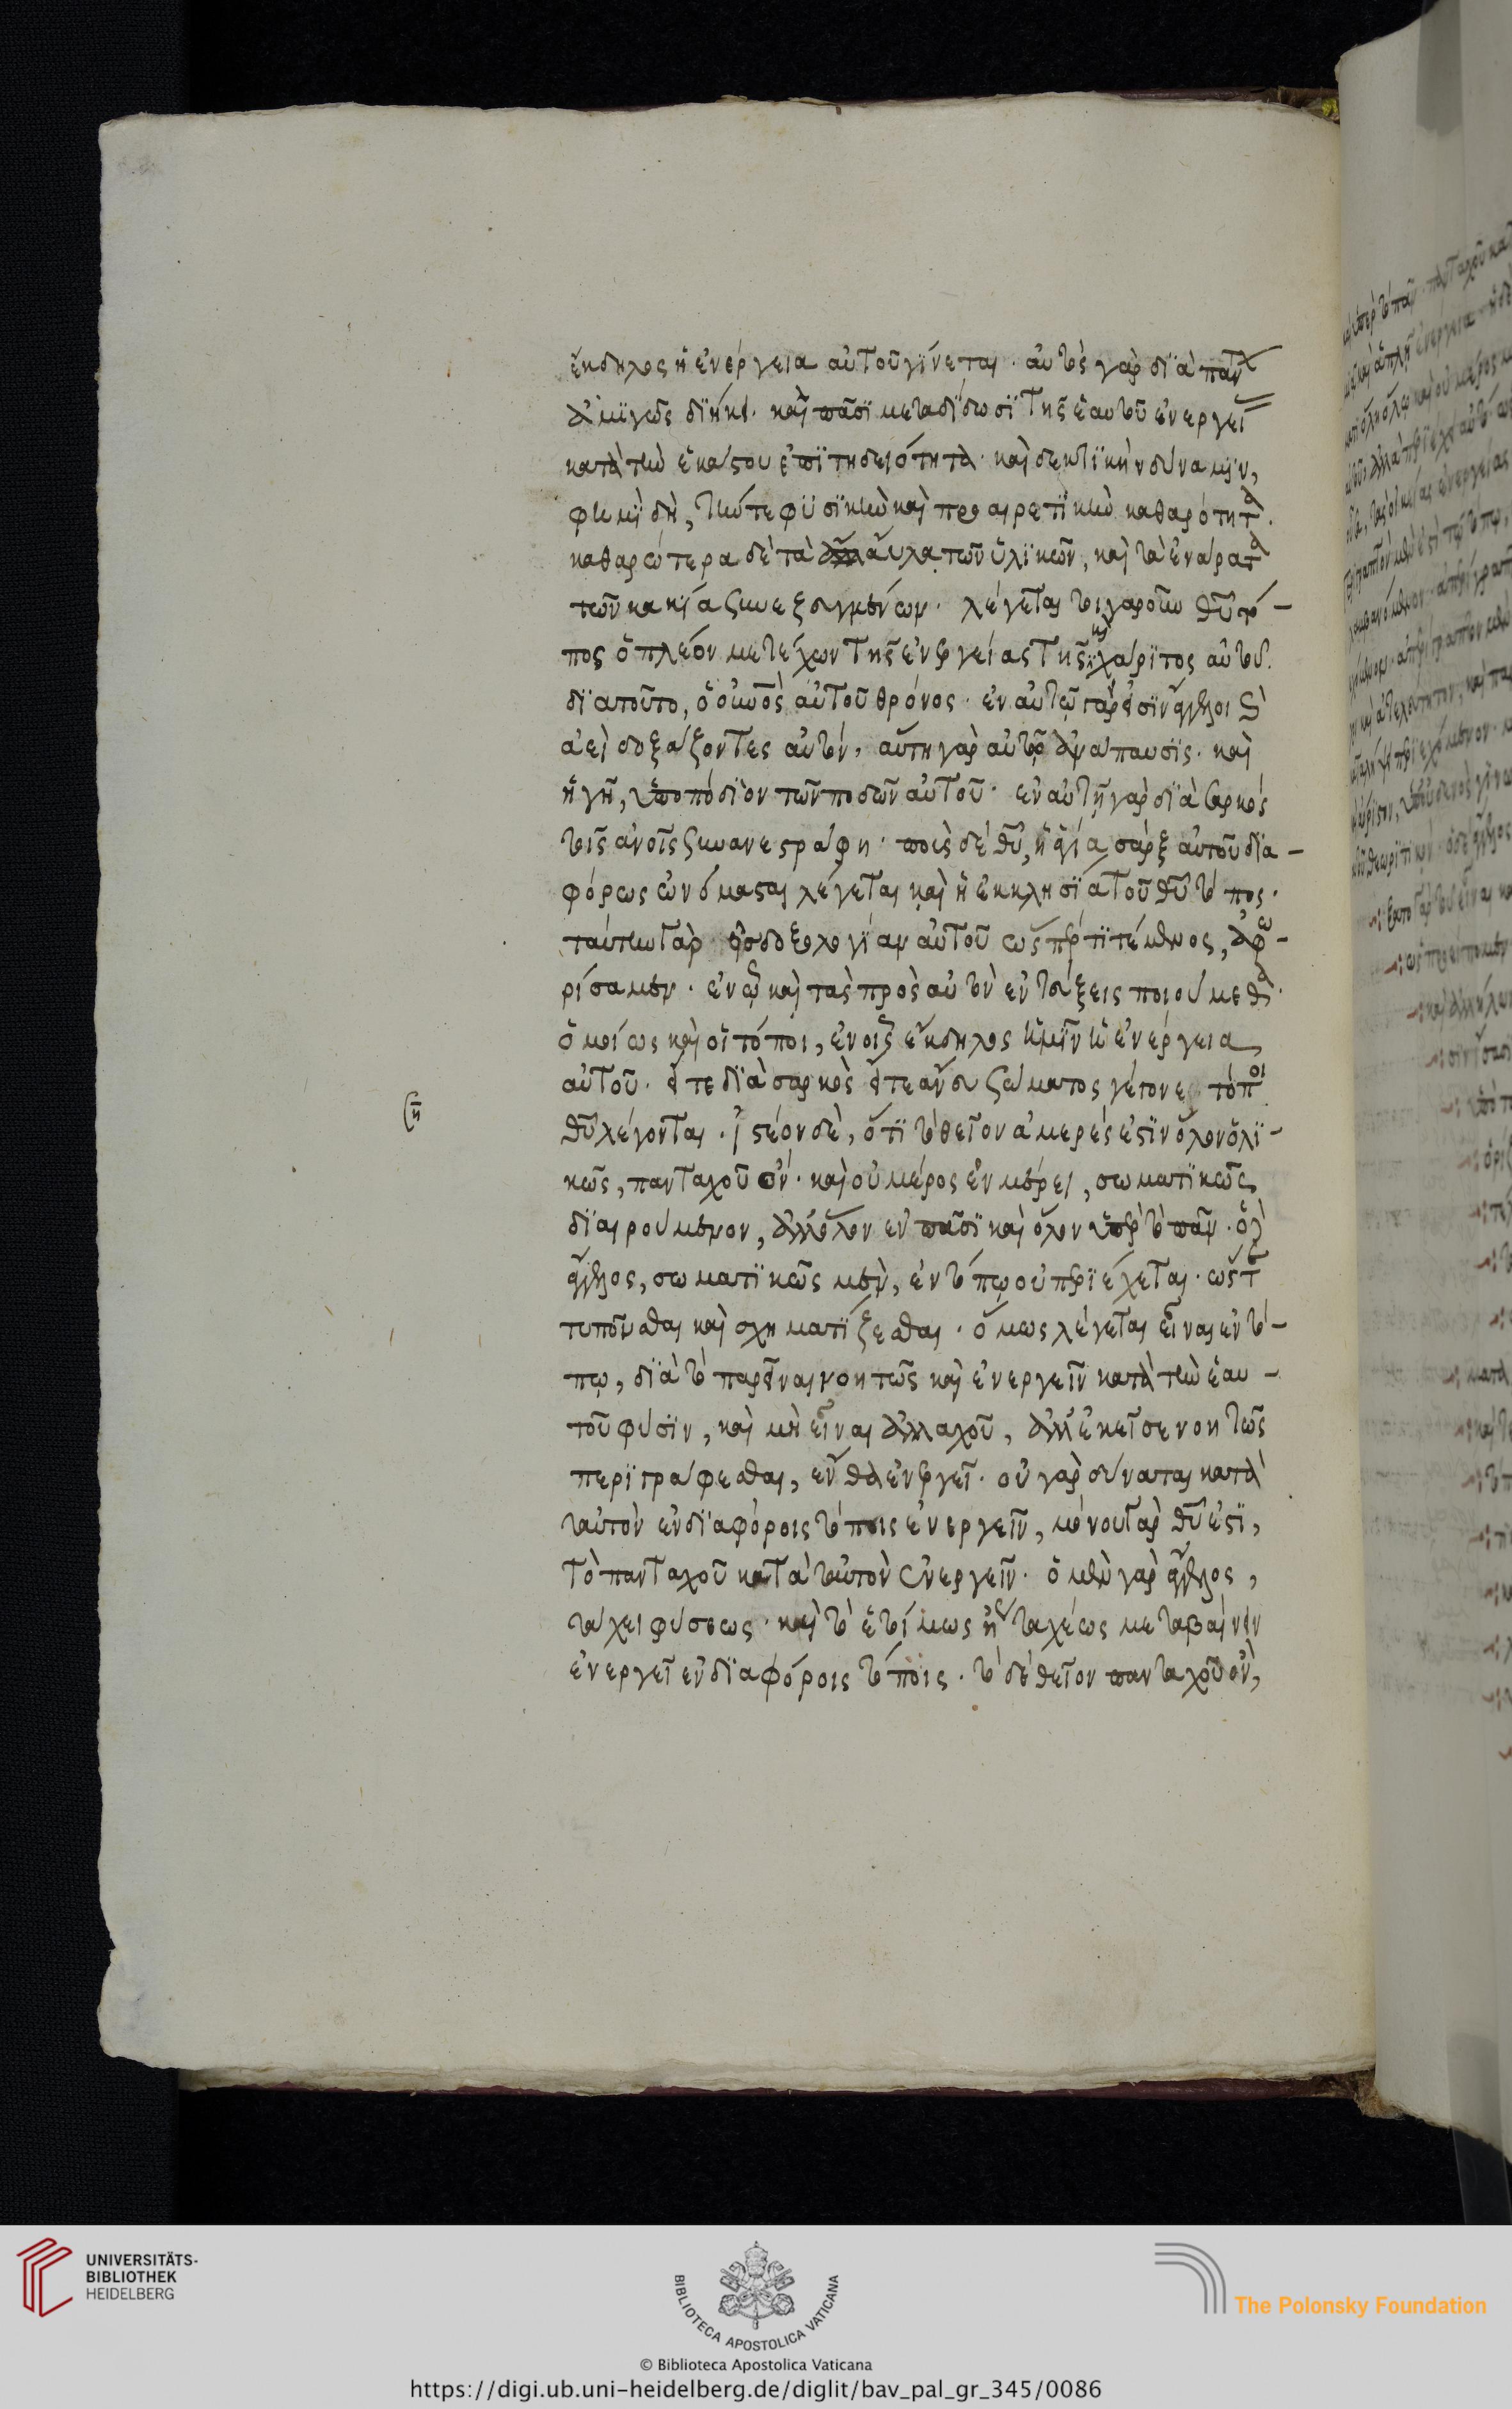 ἔκδηλος ἡ ἐνέργεια αὐτοῦ γίνεται · αὐτὸς γὰρ διὰ πάντ
ἀμιγῶς διήκει · καὶ πᾶσι μεταδίδωσι τῆς ἑαυτοῦ ἐνεργεί
κατὰ τὴν ἑκάστου ἐπιτηδειότητα · καὶ δεκτικὴν δύναμιν,
φημὶ δὴ, τήν τε φυσικὴν καὶ προαιρετικὴν καθαρότητα ·
καθαρώτερα δὲ τὰ ἄυλα τῶν ὑλικῶν, καὶ τὰ ἐνάρετα
τῶν κακίᾳ συνεζευγμένων · λέγεται τοιγαροῦν θῦ τό-
πος ὁ πλέον μετέχων τῆς ἐνεργείας καὶ τῆς χάριτος αὐτοῦ ·
διατοῦτο, ὁ οὐνὸς αὐτοῦ θρόνος · ἐν αὐτῷ γάρ εἰσιν ἄγγελοι
ἀεὶ δοξάζοντες αὐτόν, αὕτη γὰρ αὐτῷ ἀνάπαυσις · καὶ
ἡ γῆ, ὑποπόδιον τῶν ποδῶν αὐτοῦ · ἐν αὐτῇ γὰρ διὰ σαρκὸς
τοῖς ἀνοῖς συνανεστράφη · ποῦς δὲ θῦ, ἡ ἁγία σὰρξ αὐτοῦ δια-
φόρως ὠνόμασται λέγεται καὶ ἡ ἐκκλησία τοῦ θῦ τόπος ·
ταύτην γὰρ εἰς δοξολογίαν αὐτοῦ ὥσπέρ τι τέμενος, ἀφω-
ρίσαμεν · ἐν ᾧ καὶ τὰς πρὸς αὐτὸν ἐντεύξεις ποιούμεθα ·
ὁμοίως καὶ οἱ τόποι, ἐν οἷς ἔκδηλος ἡμῖν ἡ ἐνέργεια
αὐτοῦ · εἴτε διὰ σαρκὸς εἴτε ἄνευ σώματος γέγονε τόποι
θῦ λέγονται · ἰστέον δὲ, ὅτι τὸ θεῖον ἀμερές ἐστιν ὅλον ὁλι-
κῶς, πανταχοῦ ὄν · καὶ οὐ μέρος ἐν μέρει, σωματικῶς
διαιρούμενον, ἀλλ' ὅλον ἐν πᾶσι καὶ ὅλον ὑπὲρ τὸ πᾶν · ὁ δὲ
ἄγγελος, σωματικῶς μὲν, ἐν τόπῳ οὐ περιέχεται · ὥστε
τυποῦσθαι καὶ σχηματίζεσθαι · ὅμως λέγεται εἶναι ἐν τό-
πῳ, διὰ τὸ παρεῖναι νοητῶς καὶ ἐνεργεῖν κατὰ τὴν ἑαυ-
τοῦ φύσιν, καὶ μὴ εἶναι ἀλλαχοῦ, ἀλλ' ἐκεῖσε νοητῶς
περιγράφεσθαι, ἔνθα ἐνεργεῖ · οὐ γὰρ δύναται κατὰ
ταὐτὸν ἐν διαφόροις τόποις ἐνεργεῖν, μόνου γὰρ θῦ ἐστι,
τὸ πανταχοῦ κατὰ ταὐτὸν ἐνεργεῖν · ὁ μὲν γὰρ ἄγγελος,
τάχει φύσεως · καὶ τὸ ἑτοίμως ἢ ταχέως μεταβαίνειν
ἐνεργεῖ ἐν διαφόροις τόποις · τὸ δὲ θεῖον πανταχοῦ ὂν,
UNIVERSITÄTS-
BIBLIOTHEK
HEIDELBERG
BIBLIOTECA APOSTOLICA VATICANA
© Biblioteca Apostolica Vaticana
The Polonsky Foundation
https://digi.ub.uni-heidelberg.de/diglit/bav_pal_gr_345/0086